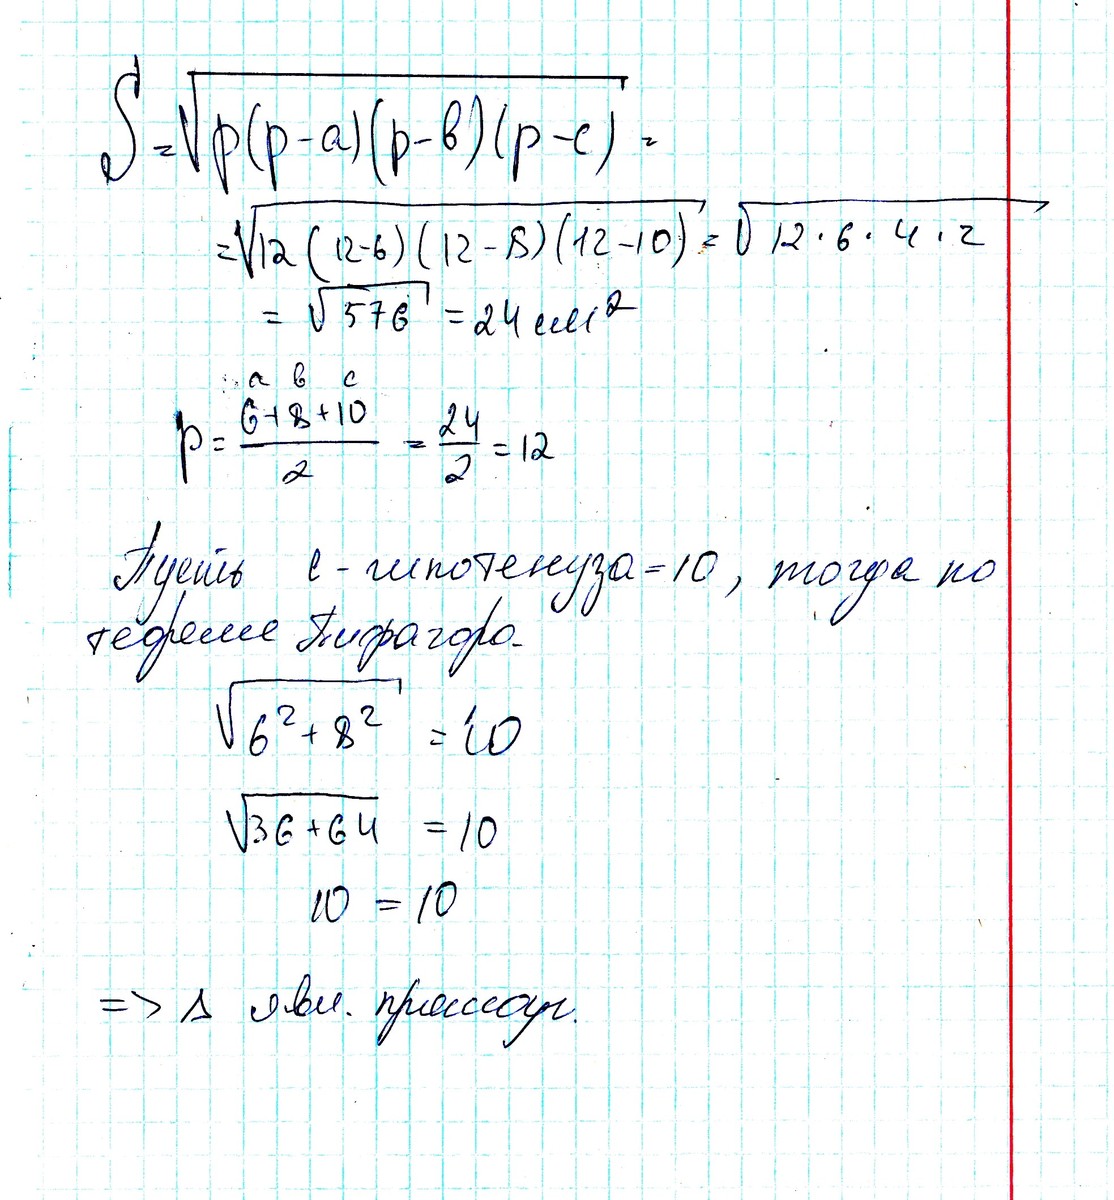 S = √p(p-a)(p-в)(p-c) =
= √12(12-6)(12-8)(12-10) = √12·6·4·2
= √576 = 24 см²
a в c
p = (6+8+10)/2 = 24/2 = 12
Пусть c - гипотенуза = 10, тогда по
теореме Пифагора.
√6² + 8² = 10
√36+64 = 10
10 = 10
=> Δ явл. прямоуг.